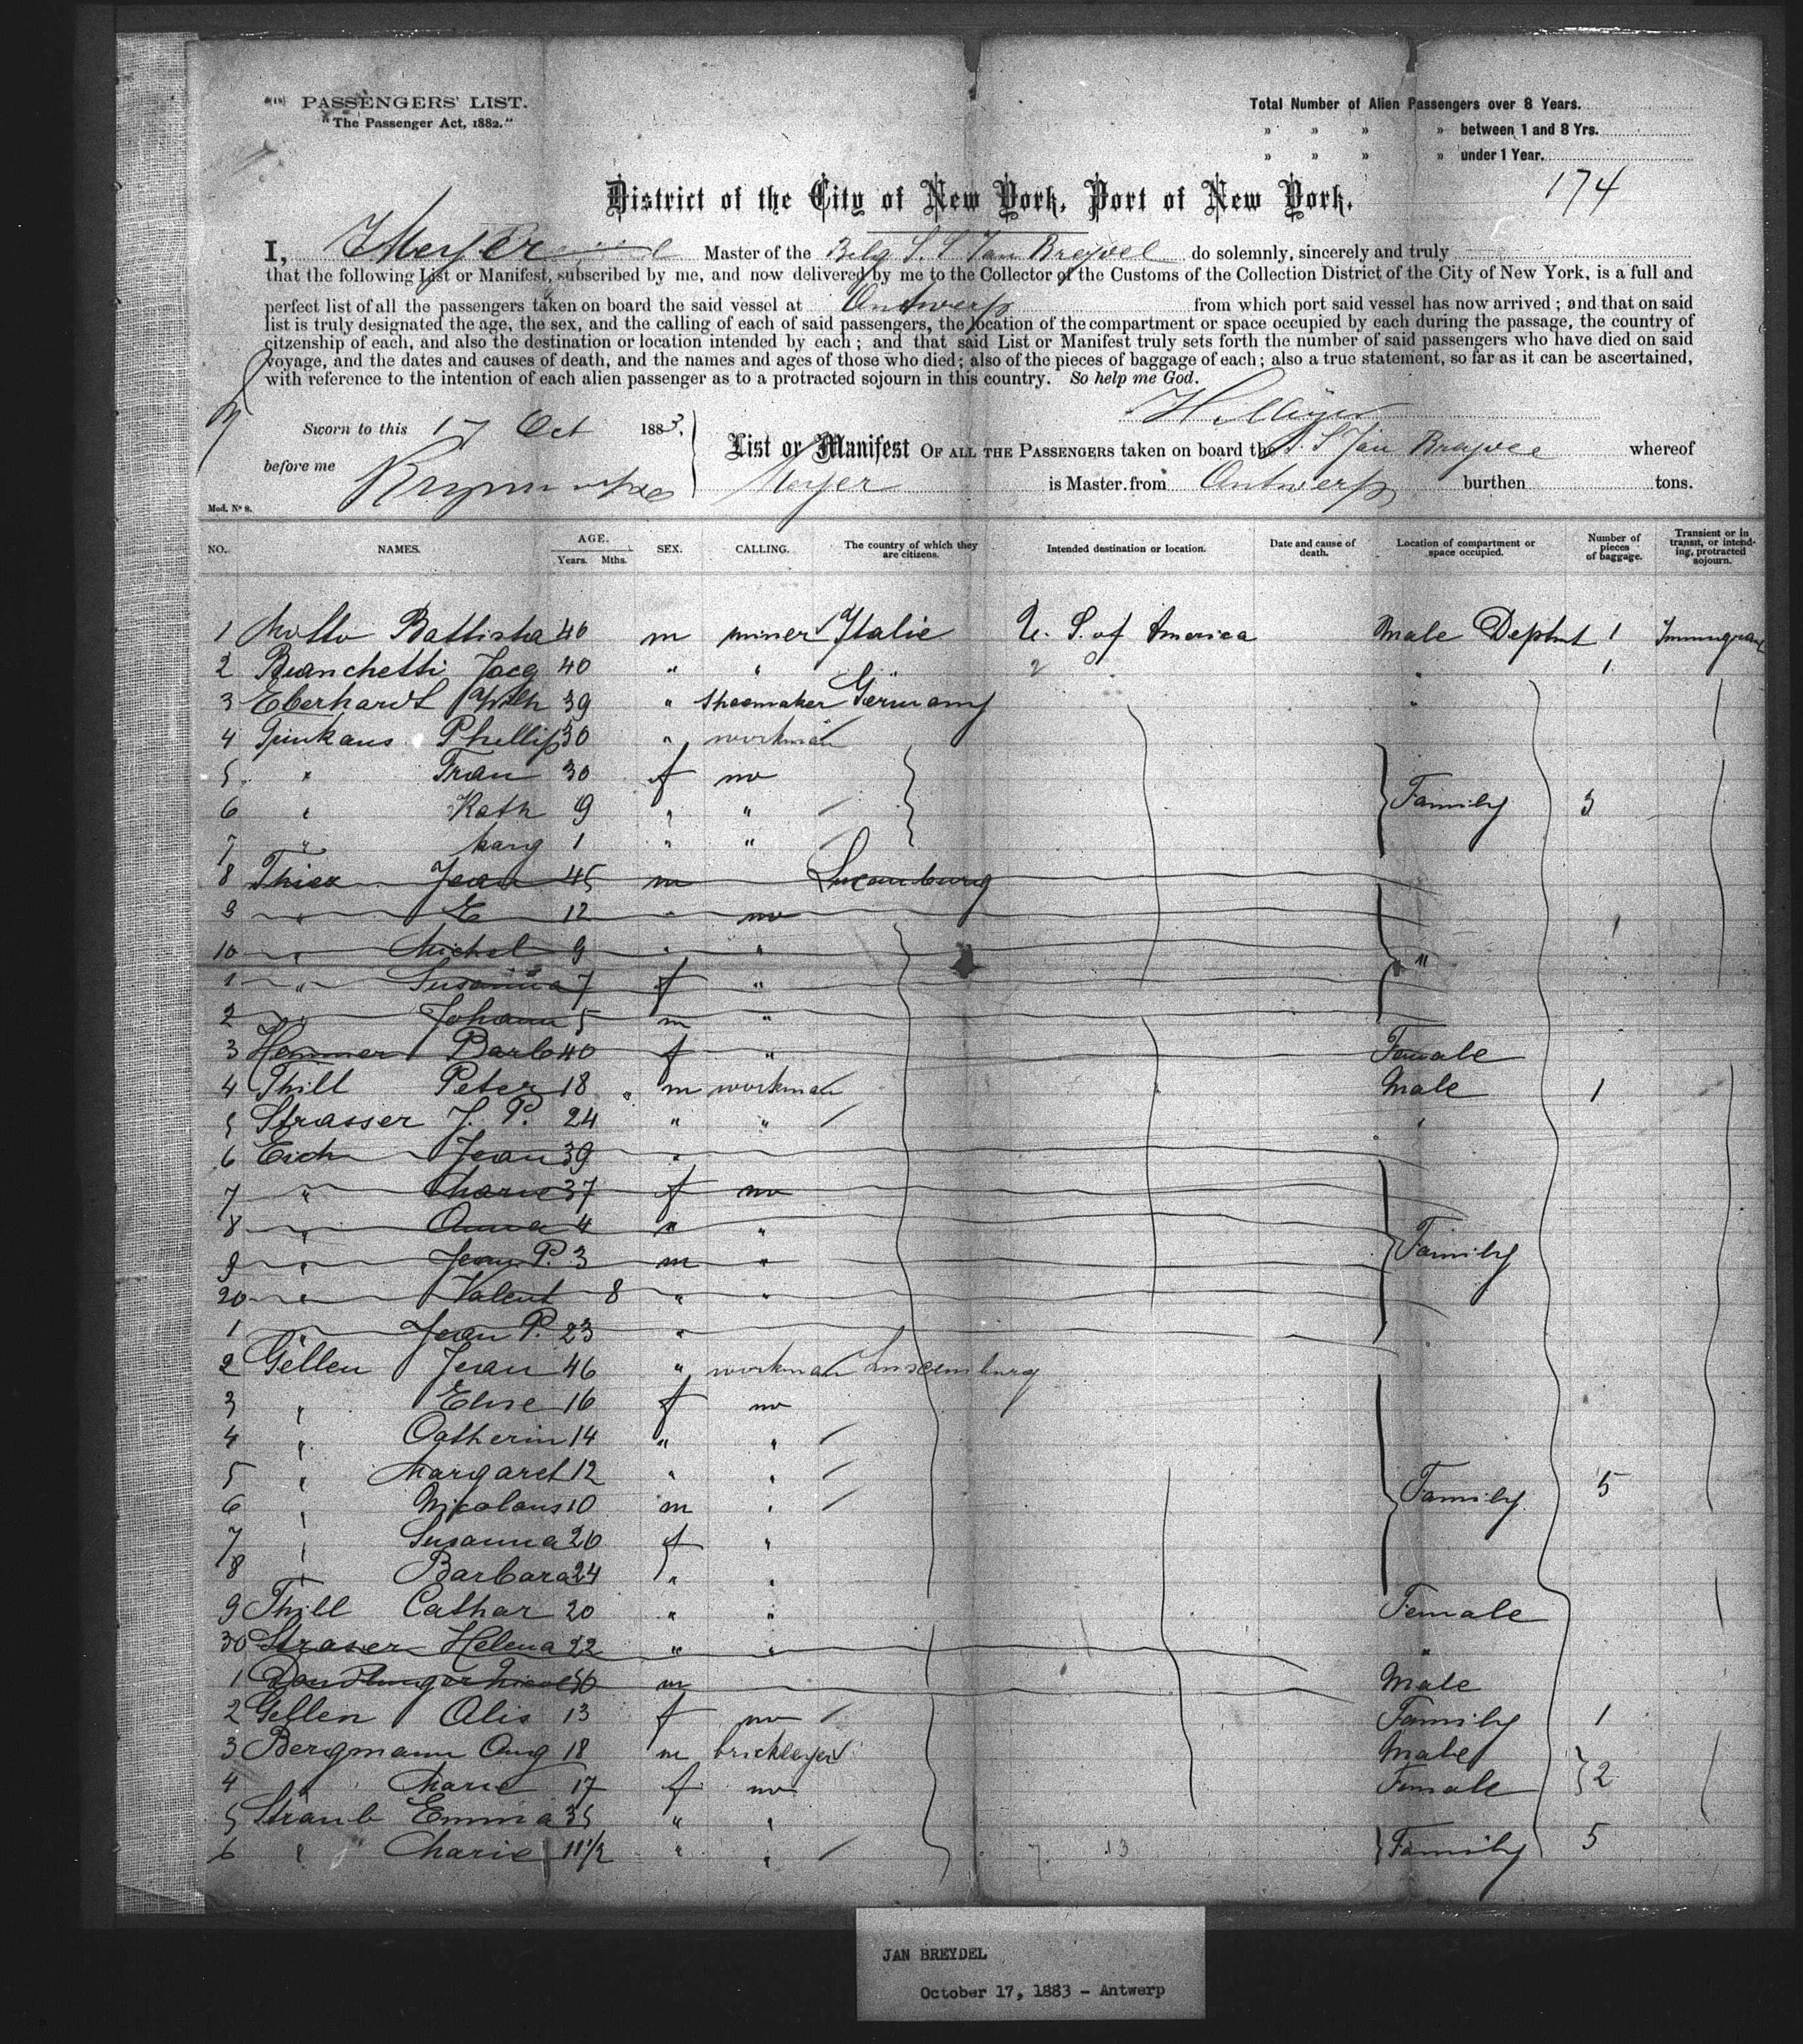 PASSENGERS' LIST.
"The Passenger Act, 1882."
Total Number of Alien Passengers over 8 Years.
" " " " between 1 and 8 Yrs.
" " " " under 1 Year.
174
District of the City of New York, Port of New York.
I, Meyer Master of the Belg S. S Jan Breydel do solemnly, sincerely and truly
that the following List or Manifest, subscribed by me, and now delivered by me to the Collector of the Customs of the Collection District of the City of New York, is a full and
perfect list of all the passengers taken on board the said vessel at Antwerp from which port said vessel has now arrived; and that on said
list is truly designated the age, the sex, and the calling of each of said passengers, the location of the compartment or space occupied by each during the passage, the country of
citzenship of each, and also the destination or location intended by each; and that said List or Manifest truly sets forth the number of said passengers who have died on said
voyage, and the dates and causes of death, and the names and ages of those who died; also of the pieces of baggage of each; also a true statement, so far as it can be ascertained,
with reference to the intention of each alien passenger as to a protracted sojourn in this country. So help me God.
H. Meyer
Sworn to this 17 Oct 1883.
before me
List or Manifest OF ALL THE PASSENGERS taken on board the S. S Jan Breydel whereof
Meyer is Master from Antwerp burthen tons.
Mod. N° 8.
NO. NAMES. AGE. Years. Mths. SEX. CALLING. The country of which they are citizens. Intended destination or location. Date and cause of death. Location of compartment or space occupied. Number of pieces of baggage. Transient or in transit, or intending, protracted sojourn.
1 Motto Battista 40 m miner Italie U. S. of America Male Dephnt 1 Immigrant
2 Bianchetti Jacq 40 " " " 1
3 Eberhardt Wilh 39 " shoemaker Germany "
4 Phillip 30 " workman
5 " Fran 30 f no
6 " Kath 9 " " Family 3
7 " Marg 1 " "
8 Jean 45 m Luxemburg
9 " E 12 " no 1
10 " Michel 9 " " "
1 " Susanna 7 f "
2 " Johann 5 m "
3 Hemmer Barb 40 f " Female
4 Thill Peter 18 m workman Male 1
5 Strasser J. P. 24 " " "
6 Eich Jean 39 "
7 " Marie 37 f no
8 " Anna 4 " "
9 " Jean P. 3 m " Family
20 " Valent 8 " "
1 " Jean P. 23 "
2 Gellen Jean 46 " workman Luxemburg
3 " Elise 16 f no
4 " Catherin 14 " "
5 " Margaret 12 " " Family 5
6 " Nicolaus 10 m "
7 " Susanna 20 f "
8 " Barbara 24 " "
9 Thill Cathar 20 " " Female
30 Straser Helena 22 " " "
1 m Male
2 Gellen Alis 13 f no Family 1
3 Bergmann Aug 18 m bricklayer Male
4 " Marie 17 f no Female 2
5 Straub Emma 35 " "
6 " Marie 11 1/2 " " 13 Family 5
JAN BREYDEL
October 17, 1883 - Antwerp